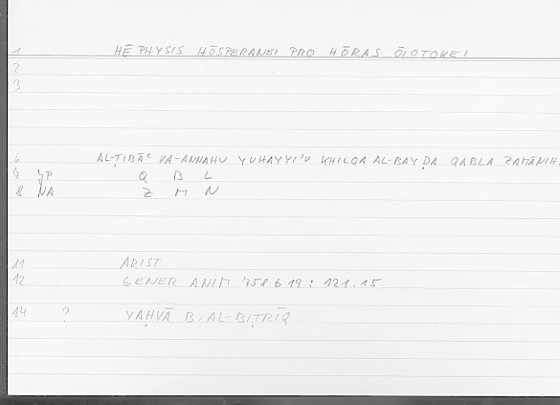 1 HĒ PHYSIS HŌSPERANEI PRO HŌRAS ŌIOTOKEI
2
3
6 AL-ṬIBĀʿ KA-ANNAHU YUHAYYIʾU KHILQA AL-BAYḌA QABLA ZAMĀNIH
7 JP Q B L
8 NA Z M N
11 ARIST
12 GENER ANIM 758 b 19 : 121.15
14 ? YAḤYĀ B. AL-BIṬRĪQ